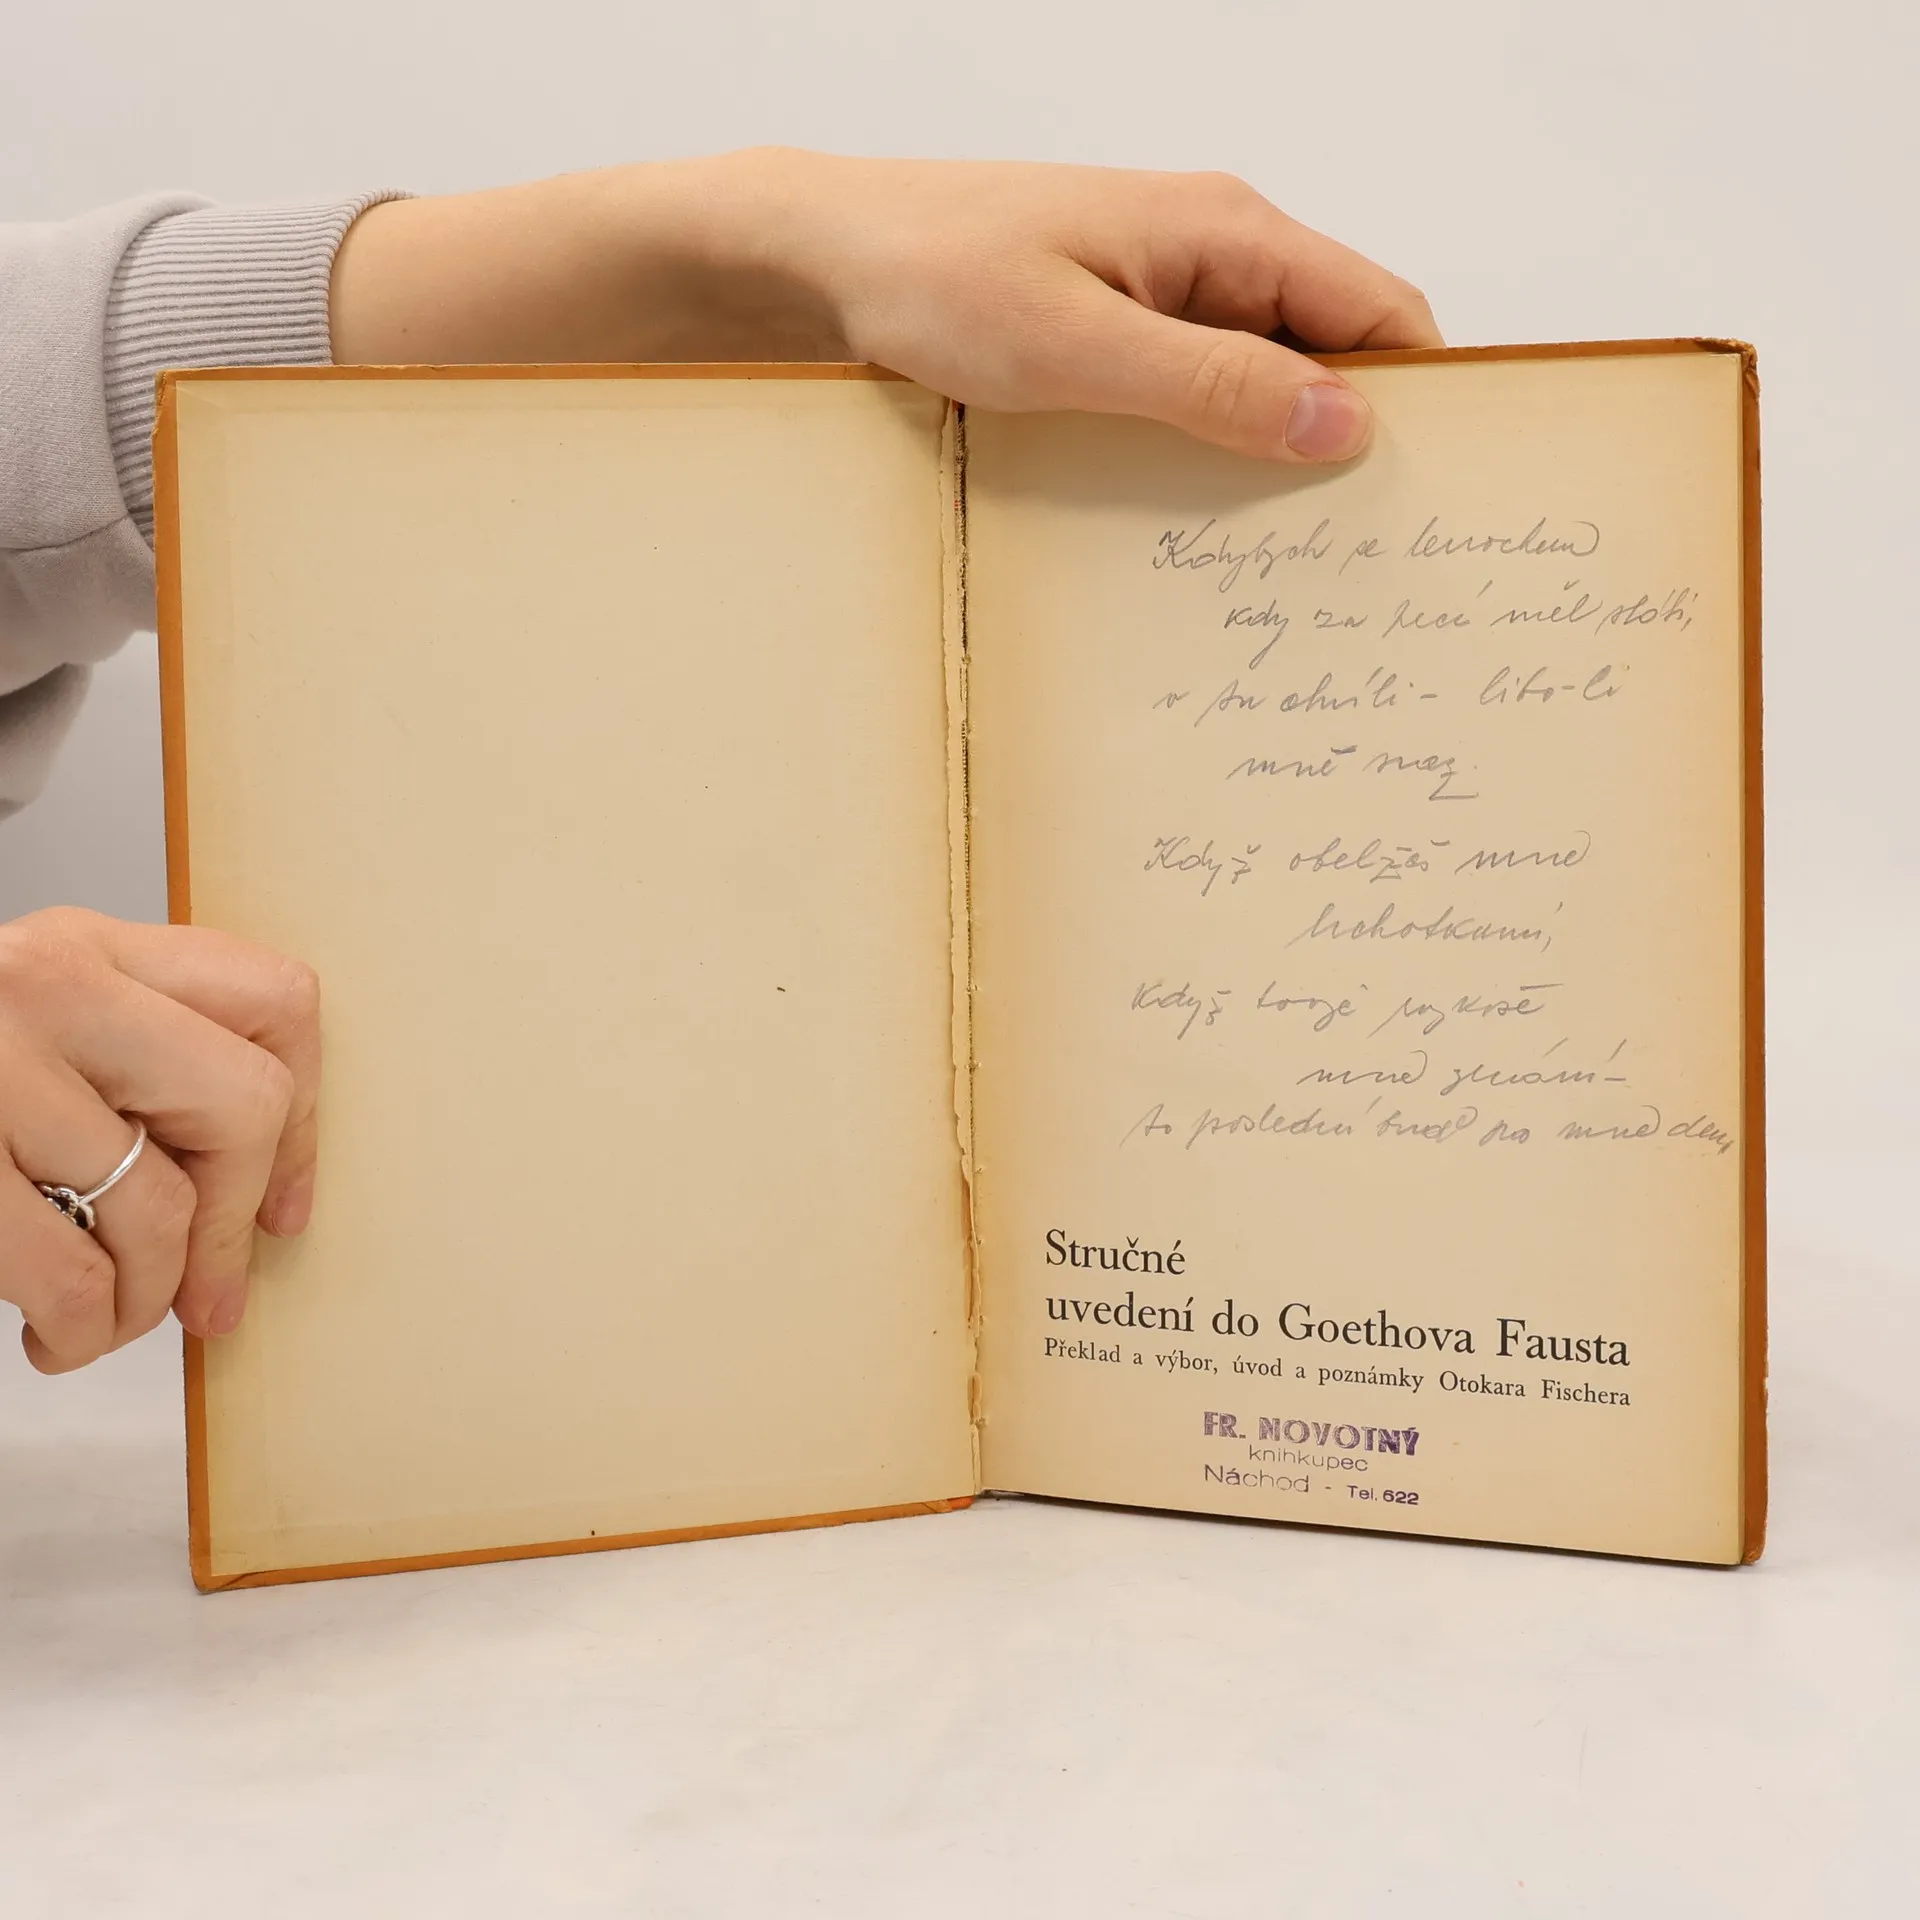 Kdybych se lenochem
kdy za pecí měl
v tu chvíli - libo-li
mně svaz.
Když obelžeš mne
lichotkami,
Když tvoje rozkoše
mne zmámí -
to poslední buď pro mne den,
Stručné
uvedení do Goethova Fausta
Překlad a výbor, úvod a poznámky Otokara Fischera
FR. NOVOTNÝ
knihkupec
Náchod - Tel. 622